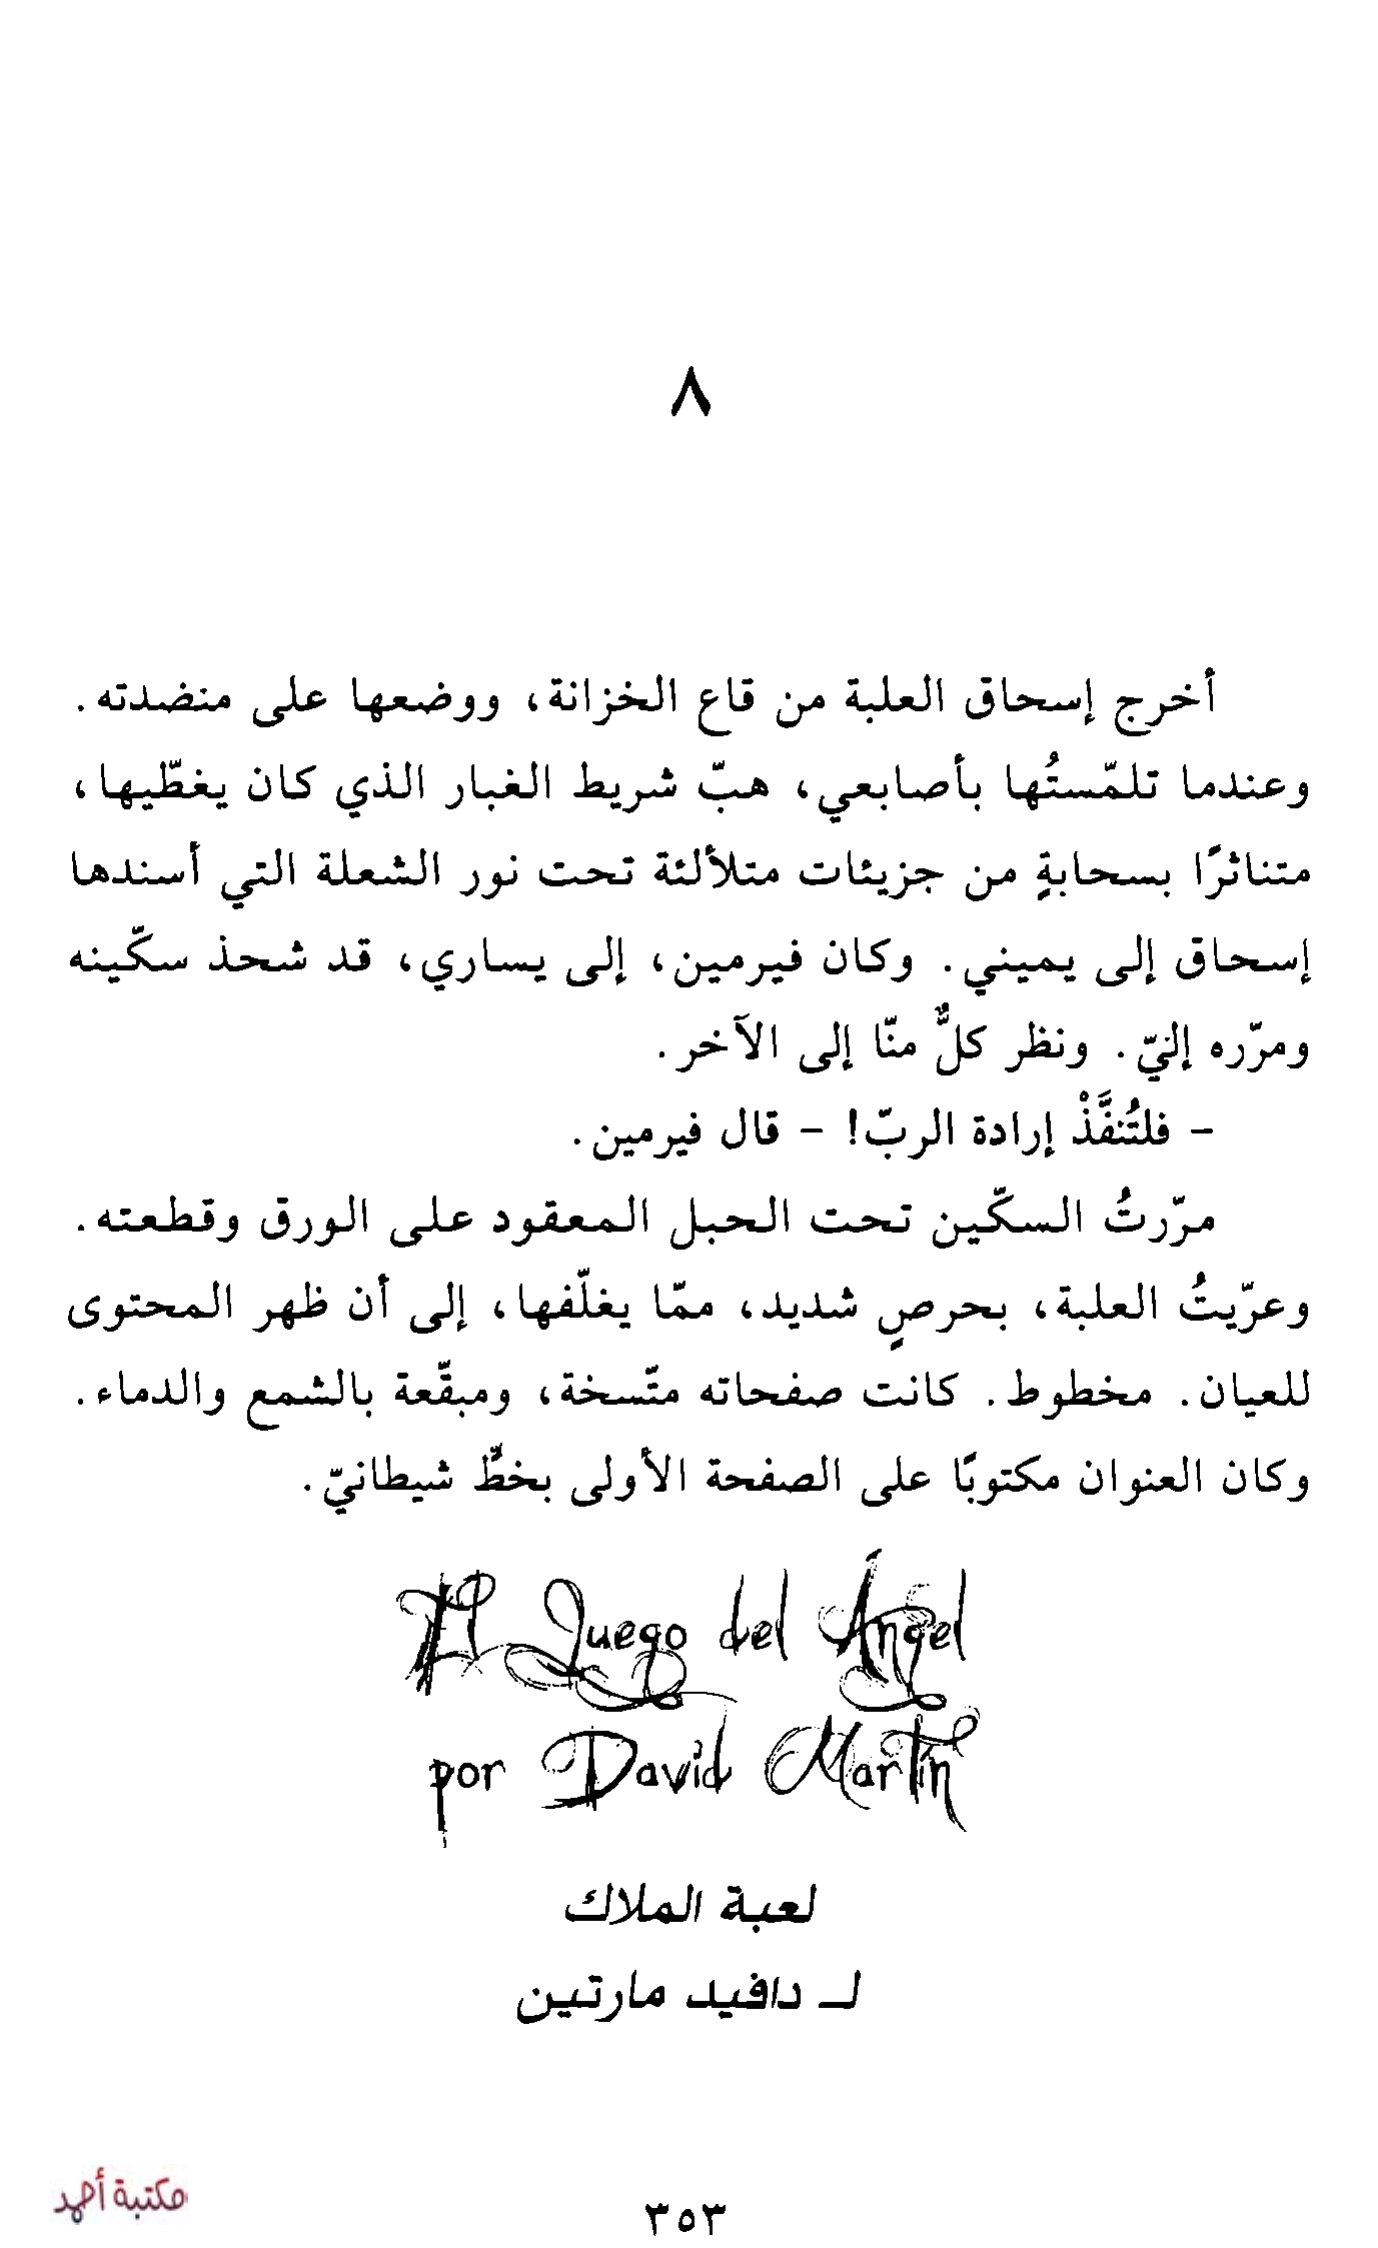 ٨
أخرج إسحاق العلبة من قاع الخزانة، ووضعها على منضدته.
وعندما تلمّستُها بأصابعي، هبّ شريط الغبار الذي كان يغطّيها،
متناثرًا بسحابةٍ من جزيئات متلألئة تحت نور الشعلة التي أسندها
إسحاق إلى يميني. وكان فيرمين، إلى يساري، قد شحذ سكّينه
ومرّره إليّ. ونظر كلٌّ منّا إلى الآخر.
– فلتُنفَّذْ إرادة الربّ! – قال فيرمين.
مرّرتُ السكّين تحت الحبل المعقود على الورق وقطعته.
وعرّيتُ العلبة، بحرصٍ شديد، ممّا يغلّفها، إلى أن ظهر المحتوى
للعيان. مخطوط. كانت صفحاته متّسخة، ومبقّعة بالشمع والدماء.
وكان العنوان مكتوبًا على الصفحة الأولى بخطٍّ شيطانيّ.
El Juego del Ángel
por David Martín
لعبة الملاك
لـ دافيد مارتين
مكتبة أحمد
٣٥٣